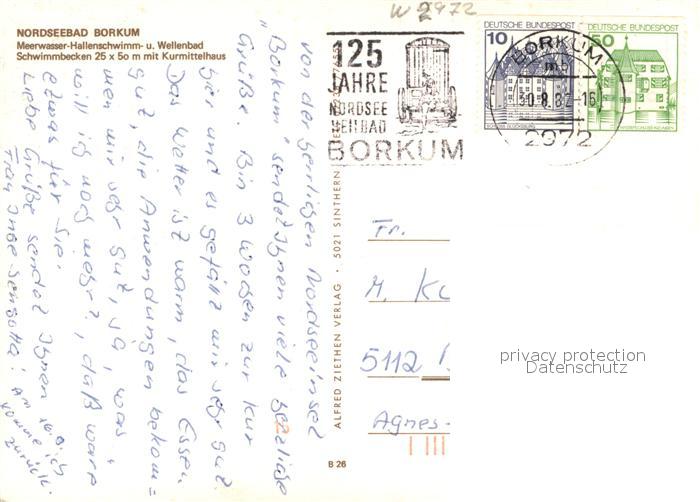 W 2972
NORDSEEBAD BORKUM
Meerwasser-Hallenschwimm- u. Wellenbad
Schwimmbecken 25 x 50 m mit Kurmittelhaus
125
JAHRE
NORDSEE
HEILBAD
BORKUM
DEUTSCHE BUNDESPOST
10
DEUTSCHE BUNDESPOST
50
BORKUM
30.8.82-16
2972
von der herrlichen Nordseeinsel
„Borkum" sendet Ihnen viele herzliche
Grüße. Bin 3 Wochen zur Kur
hier und es gefällt mir sehr gut.
Das Wetter ist warm, das Essen
gut, die Anwendungen bekom=
men mir sehr gut, ja, was
will ich noch mehr?, daß wäre
etwas für Sie.
Liebe Grüße sendet Ihnen
Frau Inge
zurück.
ALFRED ZIETHEN VERLAG · 5021 SINTHERN
B 26
Fr.
M. Kl
5112
Agnes-
privacy protection
Datenschutz